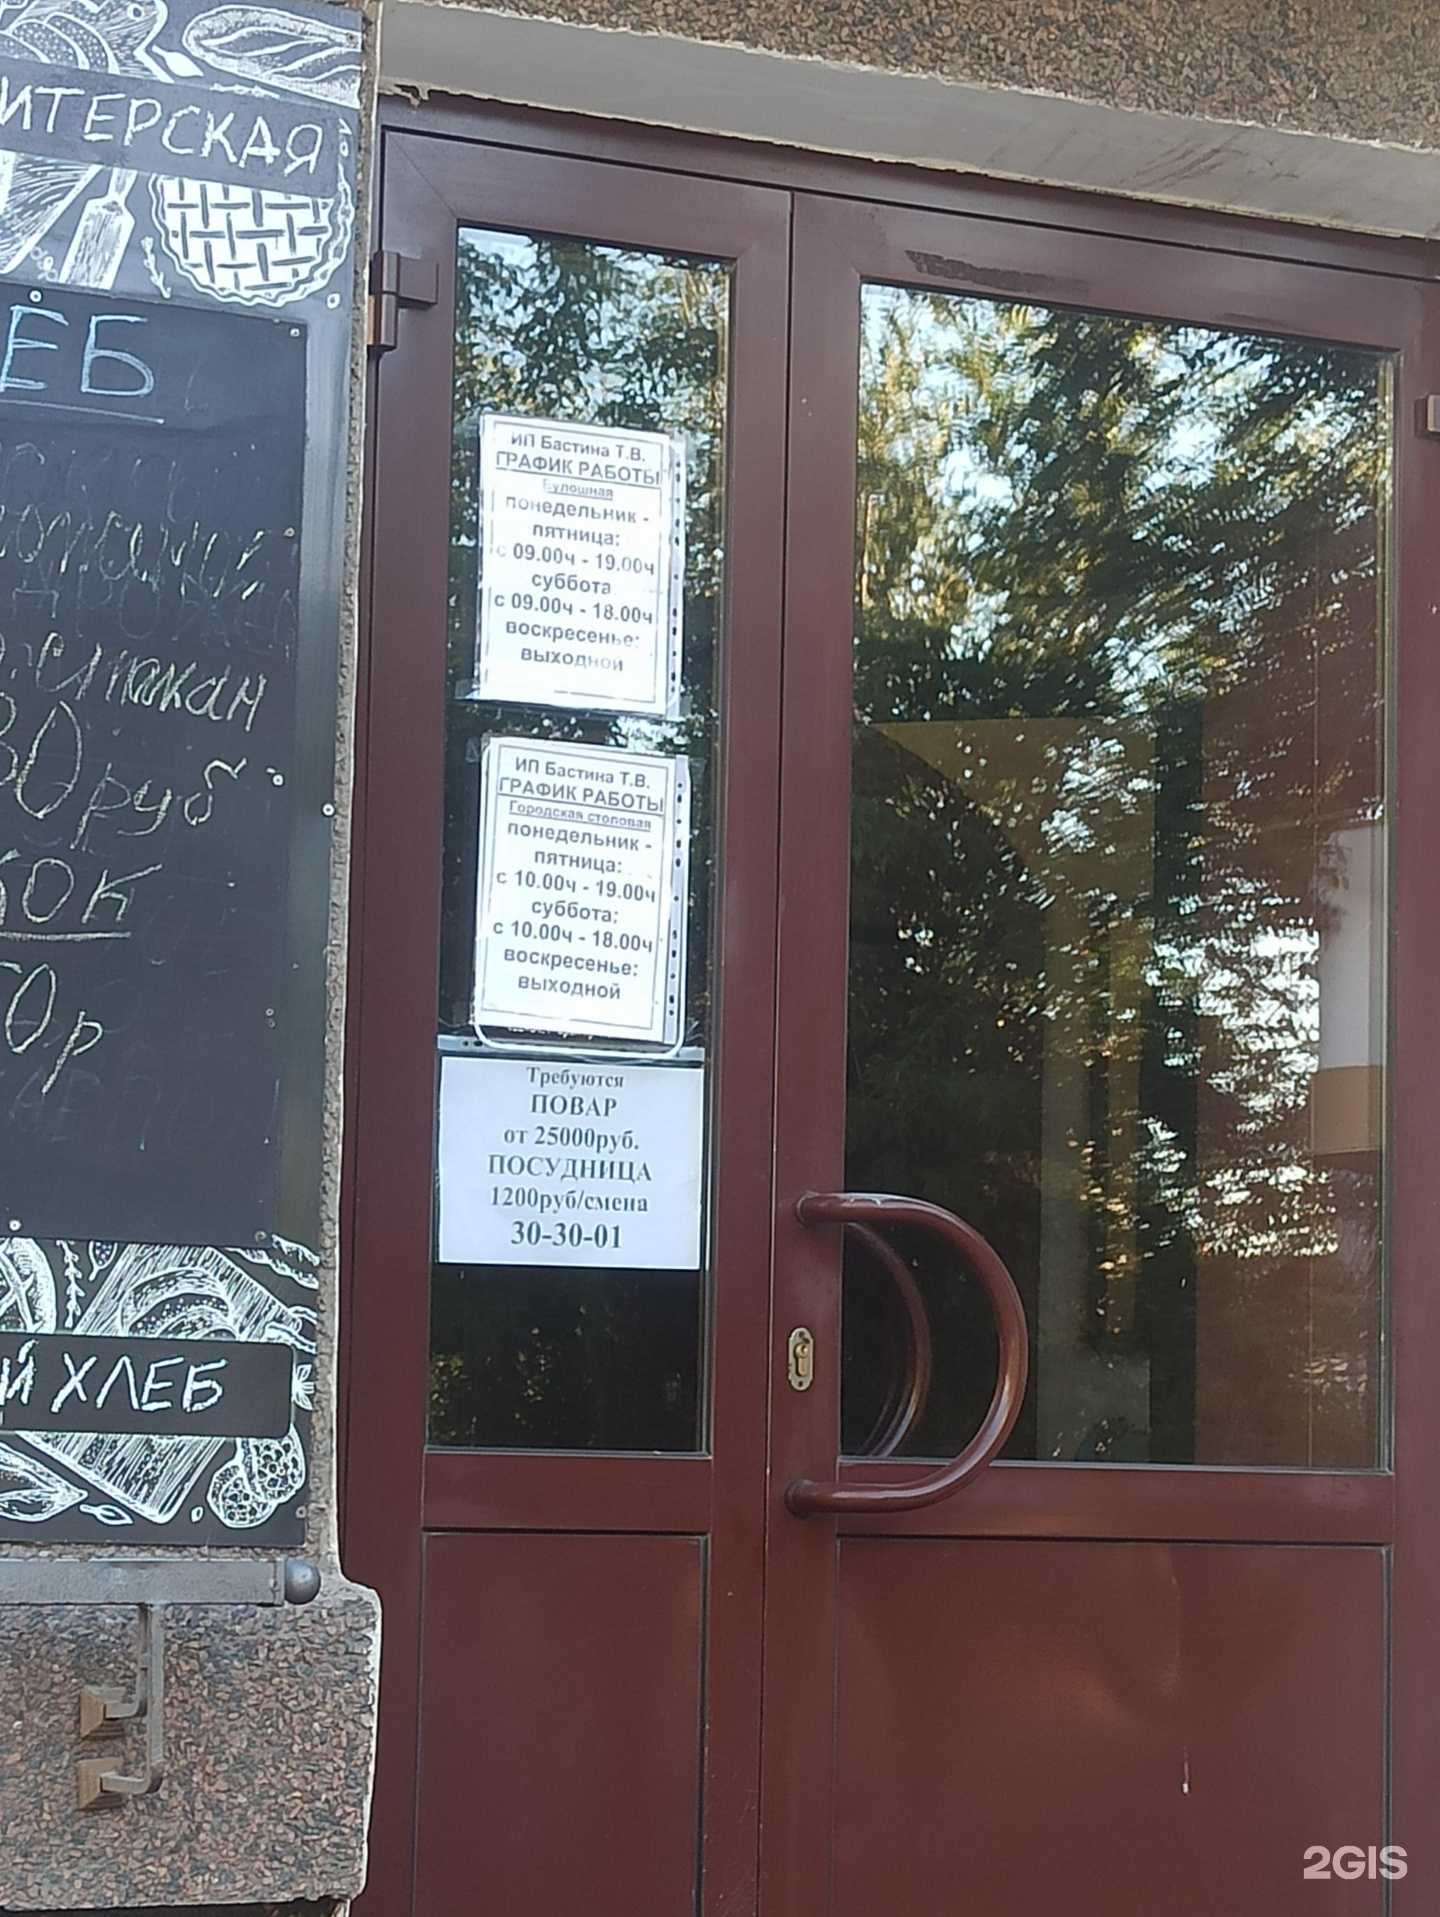 ИТЕРСКАЯ
ЁБ
стакан
30 руб
КОК
50р
Й ХЛЕБ
ИП Бастина Т.В.
ГРАФИК РАБОТЫ
Булошная
понедельник -
пятница:
с 09.00ч - 19.00ч
суббота
с 09.00ч - 18.00ч
воскресенье:
выходной
ИП Бастина Т.В.
ГРАФИК РАБОТЫ
Городская столовая
понедельник -
пятница:
с 10.00ч - 19.00ч
суббота:
с 10.00ч - 18.00ч
воскресенье:
выходной
Требуются
ПОВАР
от 25000руб.
ПОСУДНИЦА
1200руб/смена
30-30-01
2GIS